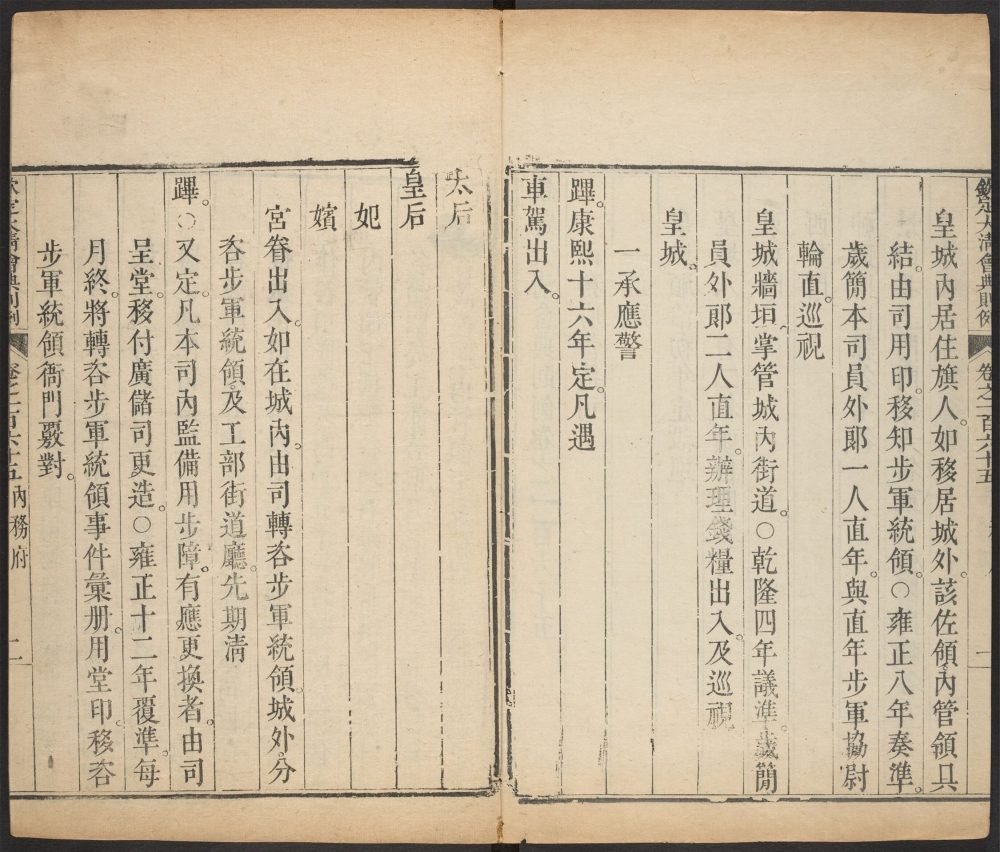 欽定大清會典則例 卷之一百六十五 一
皇城內居住旗人。如移居城外。該佐領內管領具
結。由司用印。移知步軍統領。○雍正八年奏準。
歲簡本司員外郎一人直年。與直年步軍協尉
輪直。巡視
皇城牆垣。掌管城內街道。○乾隆四年議準。歲簡
員外郎二人直年。辦理錢糧出入。及巡視
皇城。
一承應警
蹕。康熙十六年定。凡遇
車駕出入。
太后
皇后
妃
嬪
宮眷出入。如在城內。由司轉咨步軍統領。城外。分
咨步軍統領。及工部街道廳。先期清
蹕。○又定。凡本司內監備用步障。有應更換者。由司
呈堂。移付廣儲司更造。○雍正十二年覆準。每
月終。將轉咨步軍統領事件彙册。用堂印。移咨
步軍統領衙門覈對。
欽定大清會典則例 卷之一百六十五 內務府 二